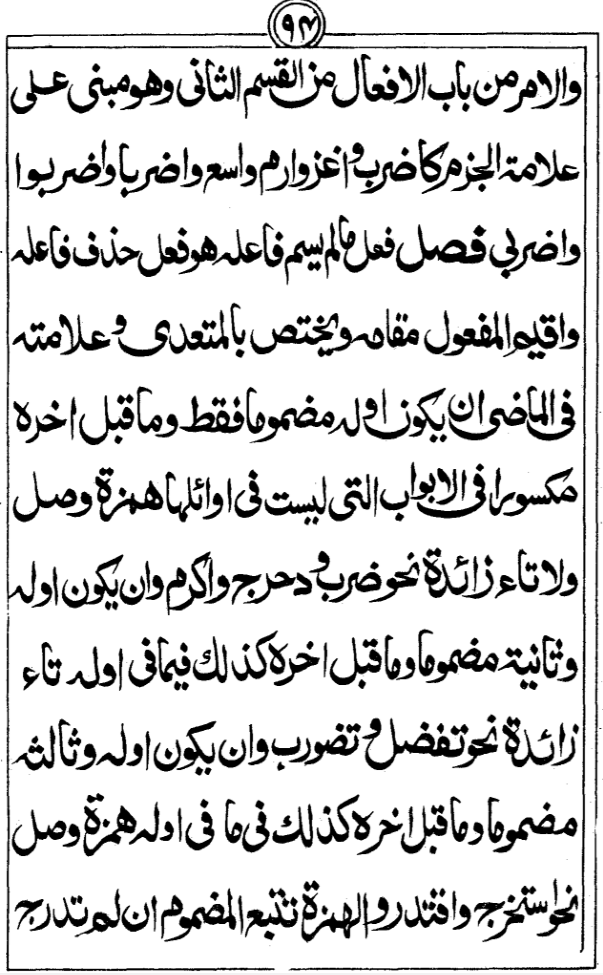 ۹۴
والامر من باب الافعال من القسم الثانی وهو مبنی علی
علامة الجزم کاضرب واغزوارم واسع واضربا واضربوا
واضربی فصل فعل مالم یسم فاعله هو فعل حذف فاعله
واقیم المفعول مقامه ویختص بالمتعدی وعلامته
فی الماضی ان یکون اوله مضموما فقط وما قبل اخره
مکسورا فی الابواب التی لیست فی اوائلها همزة وصل
ولا تاء زائدة نحو ضرب ودحرج واکرم وان یکون اوله
وثانیة مضموما وما قبل اخره کذلك فیما فی اوله تاء
زائدة نحو تفضل وتضورب وان یکون اوله وثالثه
مضموما وما قبل اخره کذلك فی ما فی اوله همزة وصل
نحو استخرج واقتدر والهمزة تتبع المضموم ان لم تدرج